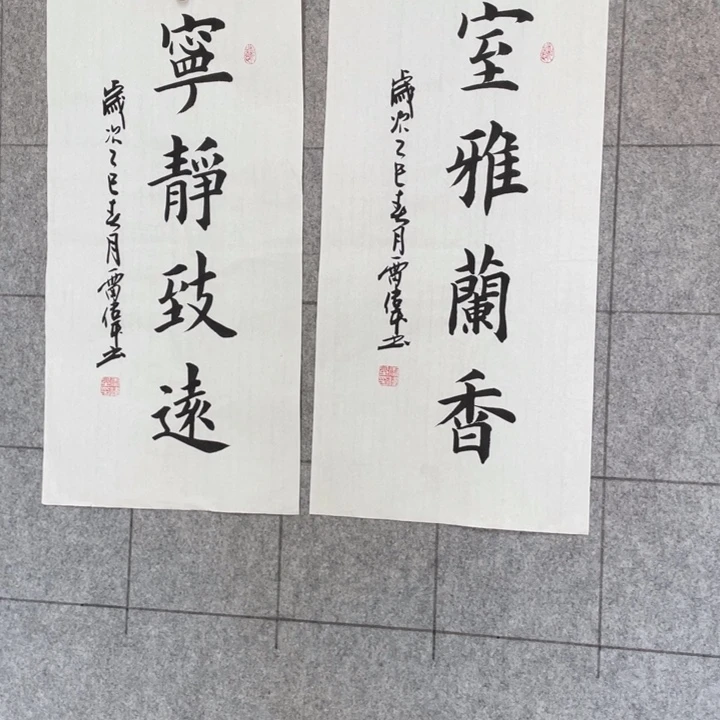 室雅蘭香
歲次乙巳春月雷偉平书
寧靜致遠
歲次乙巳春月雷偉平书